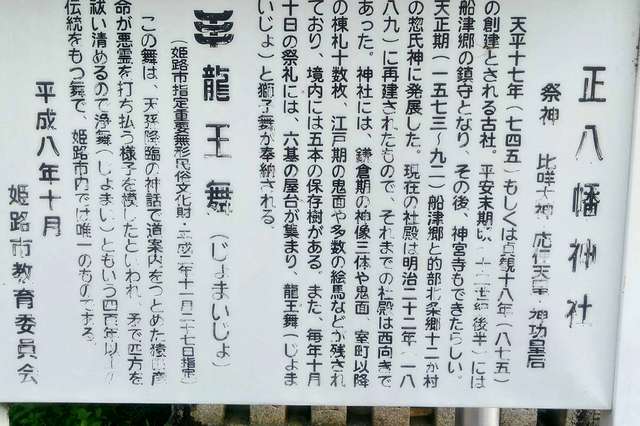 正八幡神社
祭神　比咩大神　応仁天皇　神功皇后
天平十七年（七四五）もしくは貞観十八年（八七五）
の創建とされる古社。平安末期頃、（十二世紀後半）には
船津郷の鎮守となり、その後、神宮寺もできたらしい。
天正期（一五七三～九二）船津郷と的部北条郷十二か村
の惣氏神に発展した。現在の社殿は明治二十二年（一八
八九）に再建されたもので、それまでの社殿は西向きで
あった。神社には、鎌倉期の神像三体や鬼面、室町以降
の棟札十数枚、江戸期の鬼面や多数の絵馬などが残され
ており、境内には五本の保存樹がある。また、毎年十月
十日の祭礼には、六基の屋台が集まり、龍王舞（じょま
いじょ）と獅子舞が奉納される。
龍王舞（じょまいじょ）
（姫路市指定重要無形民俗文化財・平成二年十一月二十七日指定）
この舞は、天孫降臨の神話で道案内をつとめた猿田彦
命が悪霊を打ち払う様子を模したといわれ、矛で四方を
祓い清めるので浄舞（じょまい）ともいう四百年以上の
伝統をもつ舞で、姫路市内では唯一のものである。
平成八年十月
姫路市教育委員会